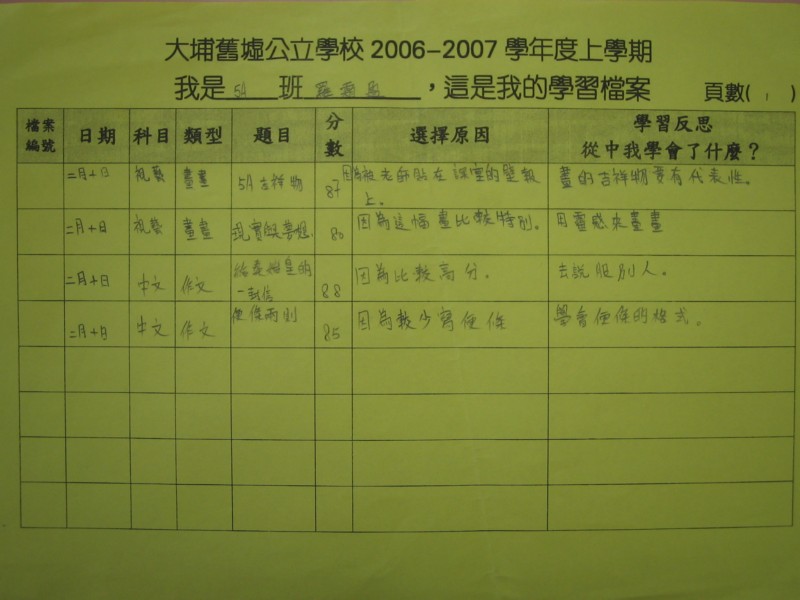 大埔舊墟公立學校 2006-2007 學年度上學期
我是 5A 班 ，這是我的學習檔案 頁數( 1 )
檔案編號 日期 科目 類型 題目 分數 選擇原因 學習反思 從中我學會了什麼？
二月十日 視藝 畫畫 5A吉祥物 87 因為被老師貼在課室的壁報上。 畫的吉祥物要有代表性。
二月十日 視藝 畫畫 現實與夢想 80 因為這幅畫比較特別。 用靈感來畫畫
二月十日 中文 作文 的一封信 88 因為比較高分。 去說服別人。
二月十日 中文 作文 便條兩則 85 因為較少寫便條 學會便條的格式。